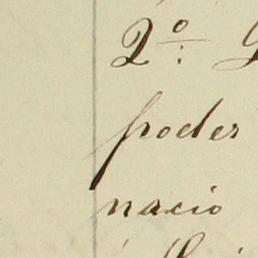 2º
poder
nacio